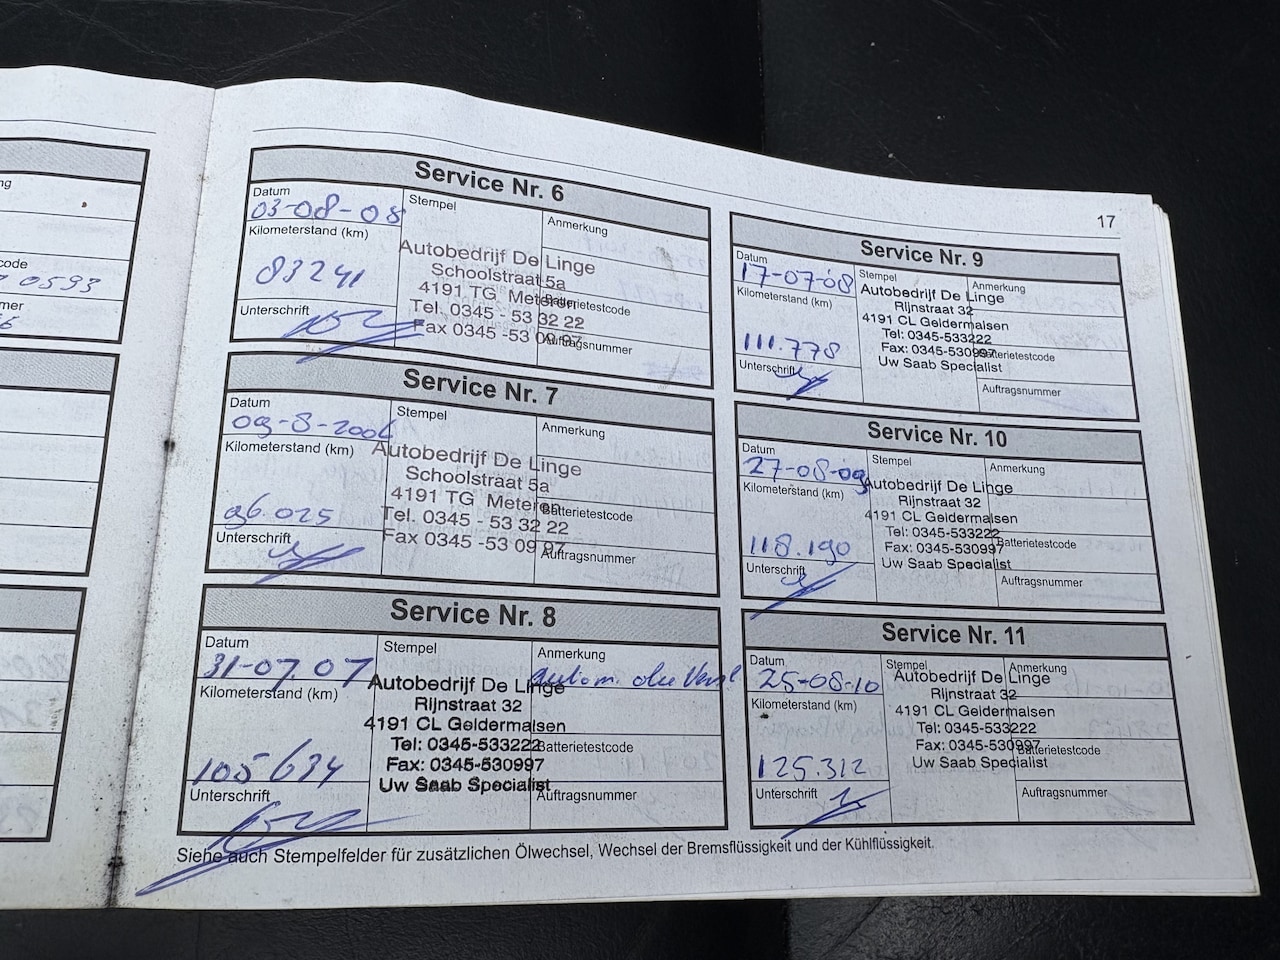 ng
code
0593
mer
Service Nr. 6
Datum
03-08-05
Stempel
Anmerkung
Kilometerstand (km)
83241
Autobedrijf De Linge
Schoolstraat 5a
4191 TG Meteren
Tel. 0345 - 53 32 22
Fax 0345 -53 09 97
Batterietestcode
Unterschrift
Auftragsnummer
Service Nr. 7
Datum
09-8-2006
Stempel
Anmerkung
Kilometerstand (km)
96.025
Autobedrijf De Linge
Schoolstraat 5a
4191 TG Meteren
Tel. 0345 - 53 32 22
Fax 0345 -53 09 97
Batterietestcode
Unterschrift
Auftragsnummer
Service Nr. 8
Datum
31-07.07
Stempel
Anmerkung
Kilometerstand (km)
105634
Autobedrijf De Linge
Rijnstraat 32
4191 CL Geldermalsen
Tel: 0345-533222
Fax: 0345-530997
Uw Saab Specialist
Batterietestcode
Unterschrift
Auftragsnummer
17
Service Nr. 9
Datum
17-07-08
Stempel
Anmerkung
Kilometerstand (km)
111.778
Autobedrijf De Linge
Rijnstraat 32
4191 CL Geldermalsen
Tel: 0345-533222
Fax: 0345-530997
Uw Saab Specialist
Batterietestcode
Unterschrift
Auftragsnummer
Service Nr. 10
Datum
27-08-09
Stempel
Anmerkung
Kilometerstand (km)
118.190
Autobedrijf De Linge
Rijnstraat 32
4191 CL Geldermalsen
Tel: 0345-533222
Fax: 0345-530997
Uw Saab Specialist
Batterietestcode
Unterschrift
Auftragsnummer
Service Nr. 11
Datum
25-08-10
Stempel
Anmerkung
Kilometerstand (km)
125.312
Autobedrijf De Linge
Rijnstraat 32
4191 CL Geldermalsen
Tel: 0345-533222
Fax: 0345-530997
Uw Saab Specialist
Batterietestcode
Unterschrift
Auftragsnummer
Siehe auch Stempelfelder für zusätzlichen Ölwechsel, Wechsel der Bremsflüssigkeit und der Kühlflüssigkeit.